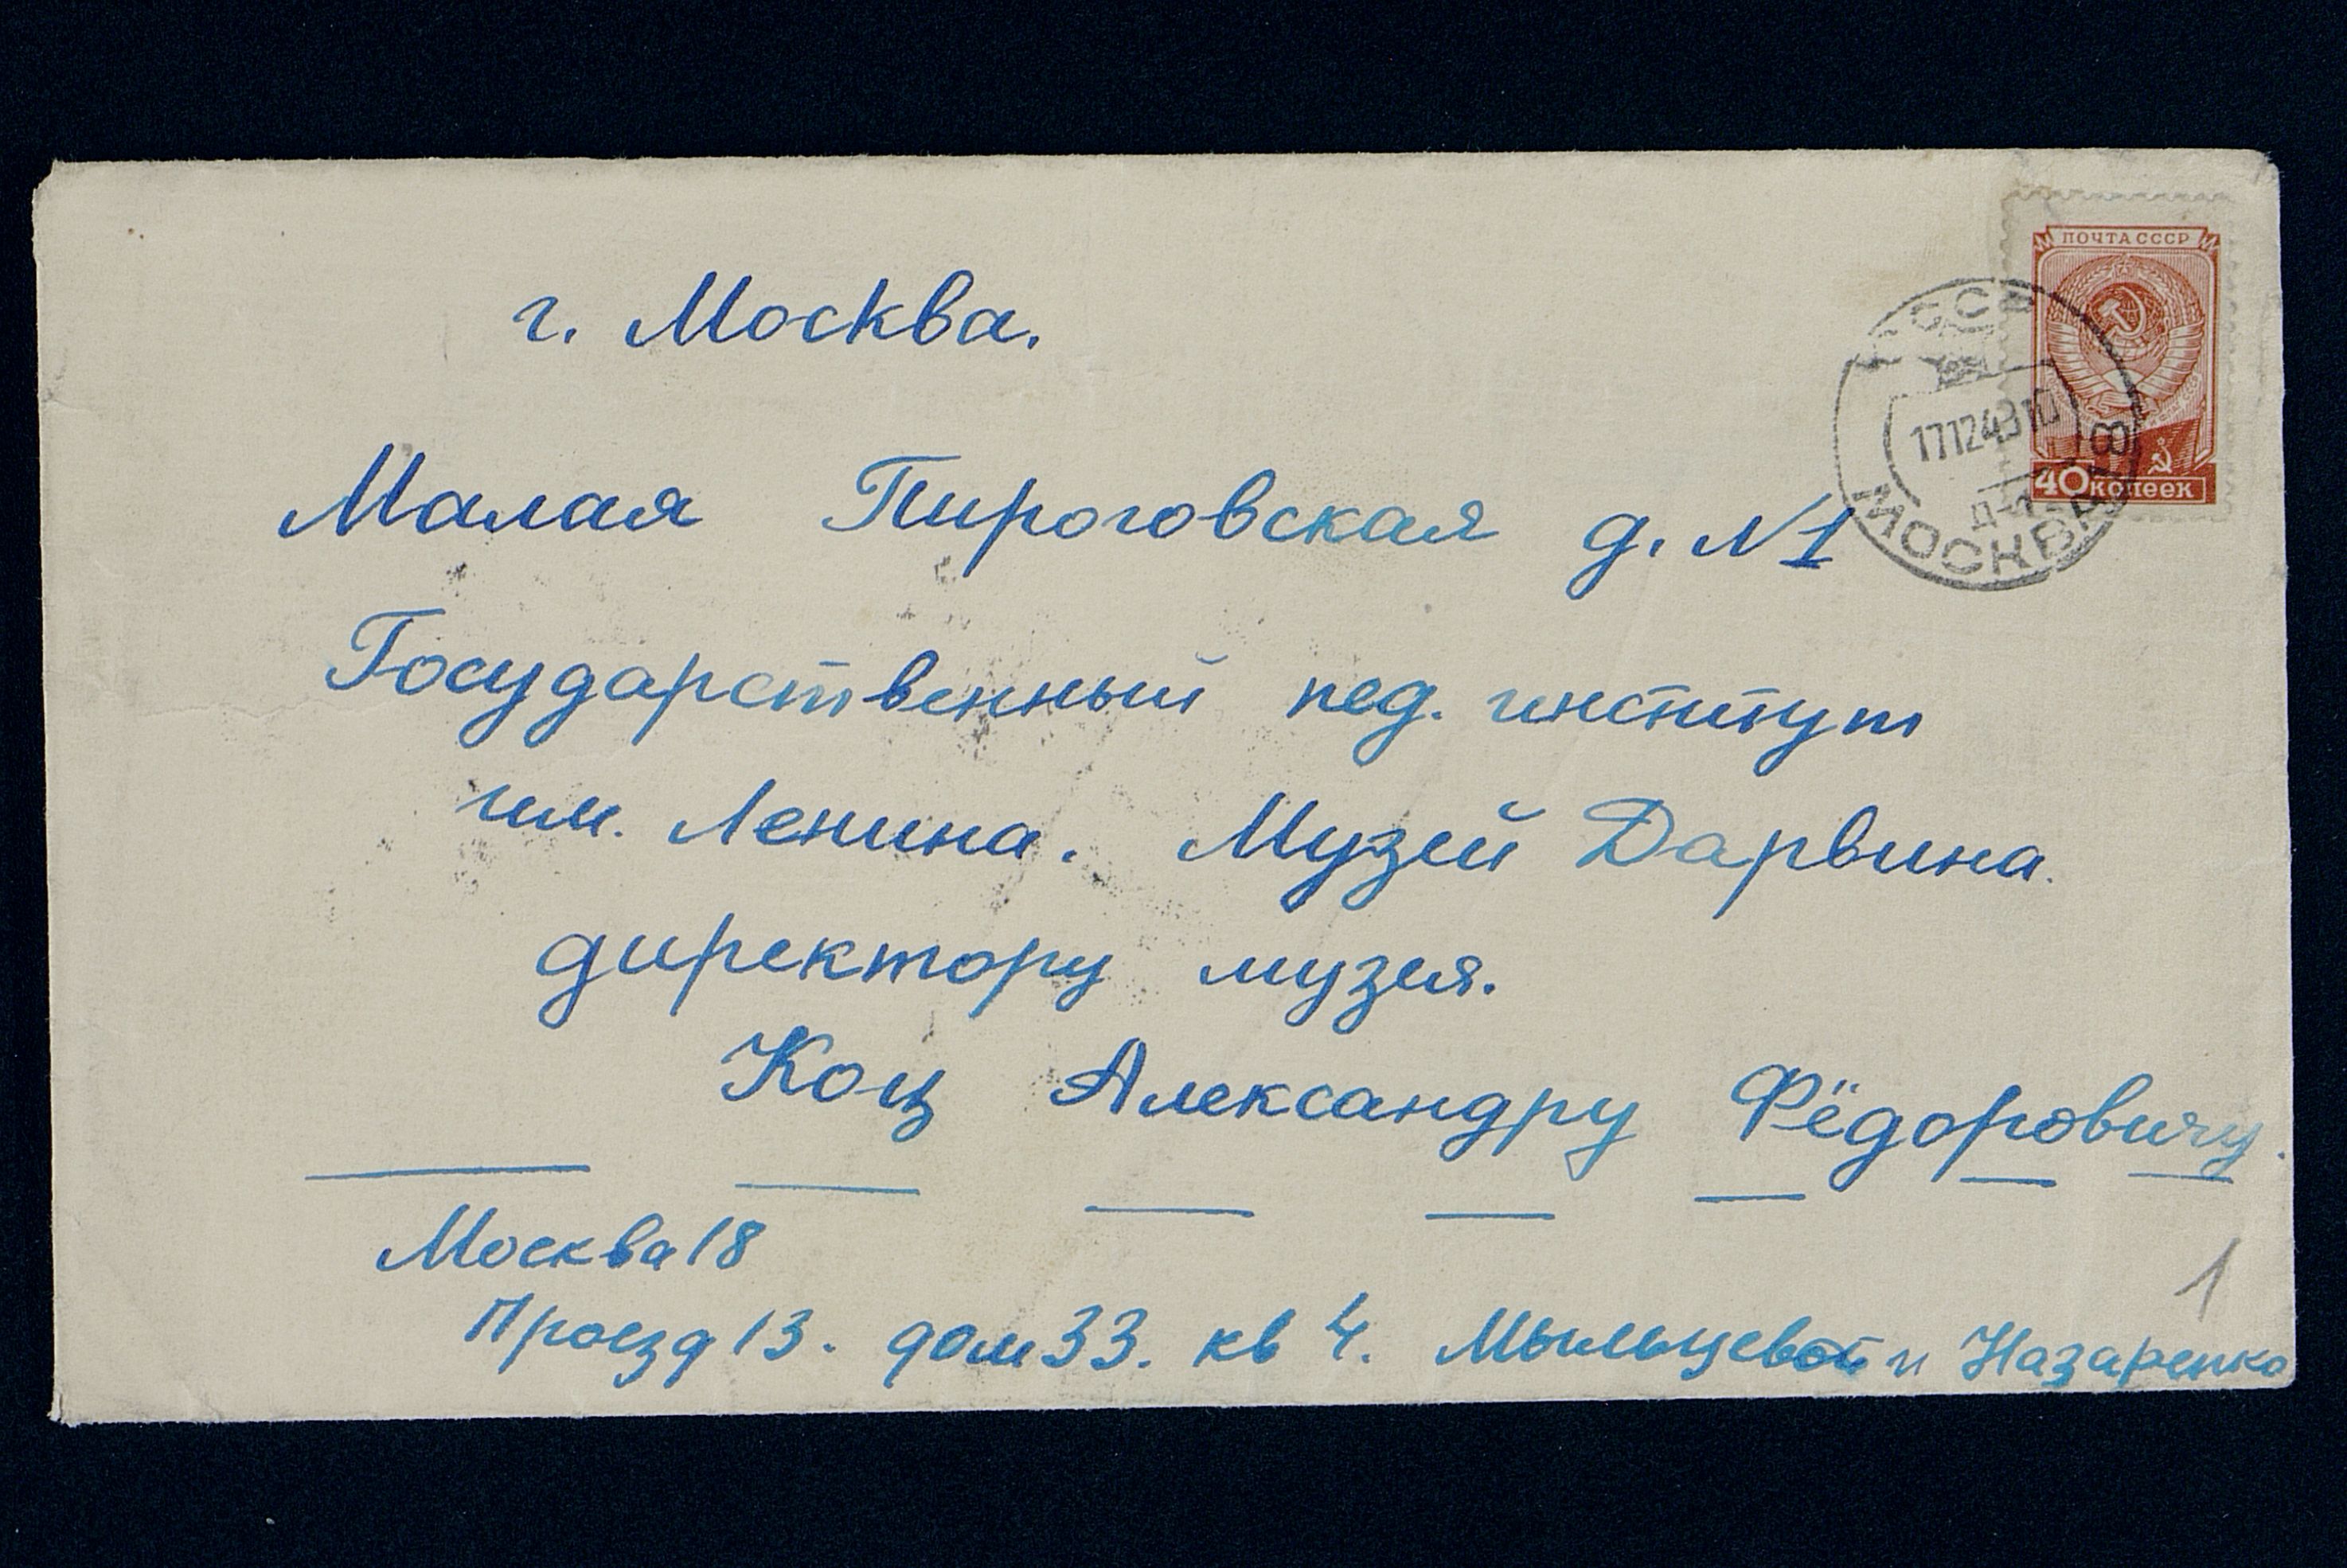 ПОЧТА СССР
40 копеек
СССР
МОСКВА
г. Москва.
Малая Пироговская д. N1
Государственный пед. институт
им. Ленина. Музей Дарвина.
директору музея.
Коц Александру Фёдоровичу.
Москва 18
Проезд 13. дом 33. кв 4. Мыльцевой и Назаренко
1